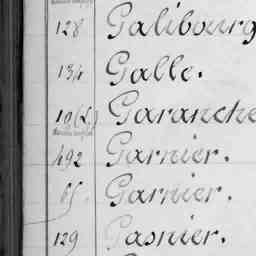 128 Galibourg
134 Galle.
Garanche
492 Garnier.
65. Garnier.
129 Gasnier.